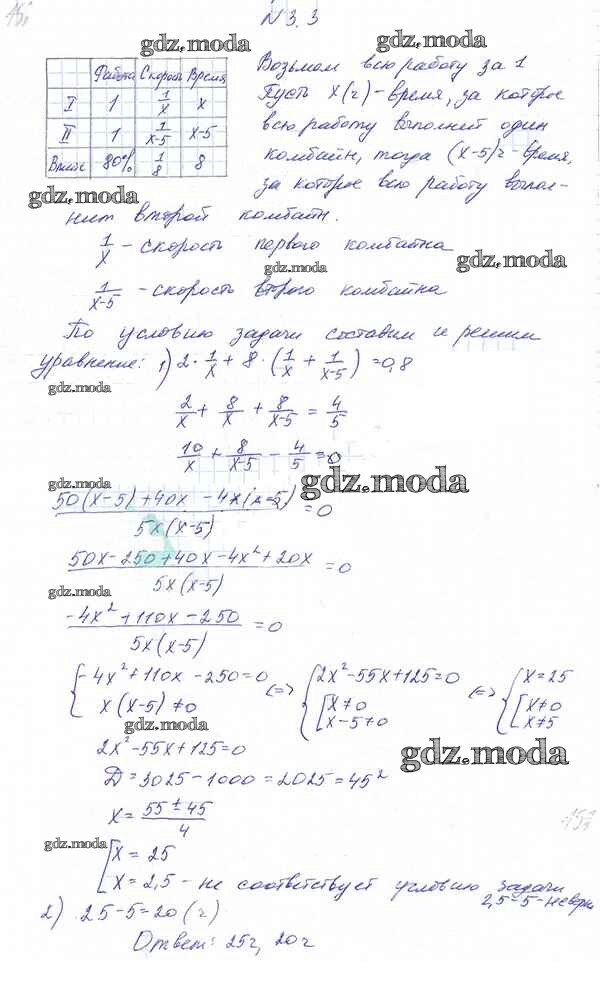 N 3.3
gdz.moda
Работа Скорость Время
I 1 1/x x
II 1 1/(x-5) x-5
Вместе 80% 1/8 8
Возьмем всю работу за 1
Пусть x(ч) - время, за которое
всю работу выполнит один
комбайн, тогда (x-5)ч - время,
за которое всю работу выпол-
gdz.moda
нит второй комбайн.
1/x - скорость первого комбайна
gdz.moda gdz.moda
1/(x-5) - скорость второго комбайна
По условию задачи составим и решим
уравнение: 1) 2·1/x + 8·(1/x + 1/(x-5)) = 0,8
gdz.moda
2/x + 8/x + 8/(x-5) = 4/5
10/x + 8/(x-5) - 4/5 = 0
gdz.moda gdz.moda
(50(x-5)+40x-4x(x-5))/(5x(x-5)) = 0
(50x-250+40x-4x²+20x)/(5x(x-5)) = 0
gdz.moda
(-4x²+110x-250)/(5x(x-5)) = 0
{-4x²+110x-250=0 <=> {2x²-55x+125=0 <=> {x=25
x(x-5)≠0 [x≠0 [x≠0
x-5≠0 x≠5
gdz.moda
2x²-55x+125=0
gdz.moda
D=3025-1000=2025=45²
x=(55±45)/4
gdz.moda
[x=25
x=2,5 - не соответствует условию задачи
2,5-5-неверно
2) 25-5=20(ч)
Ответ: 25ч, 20ч